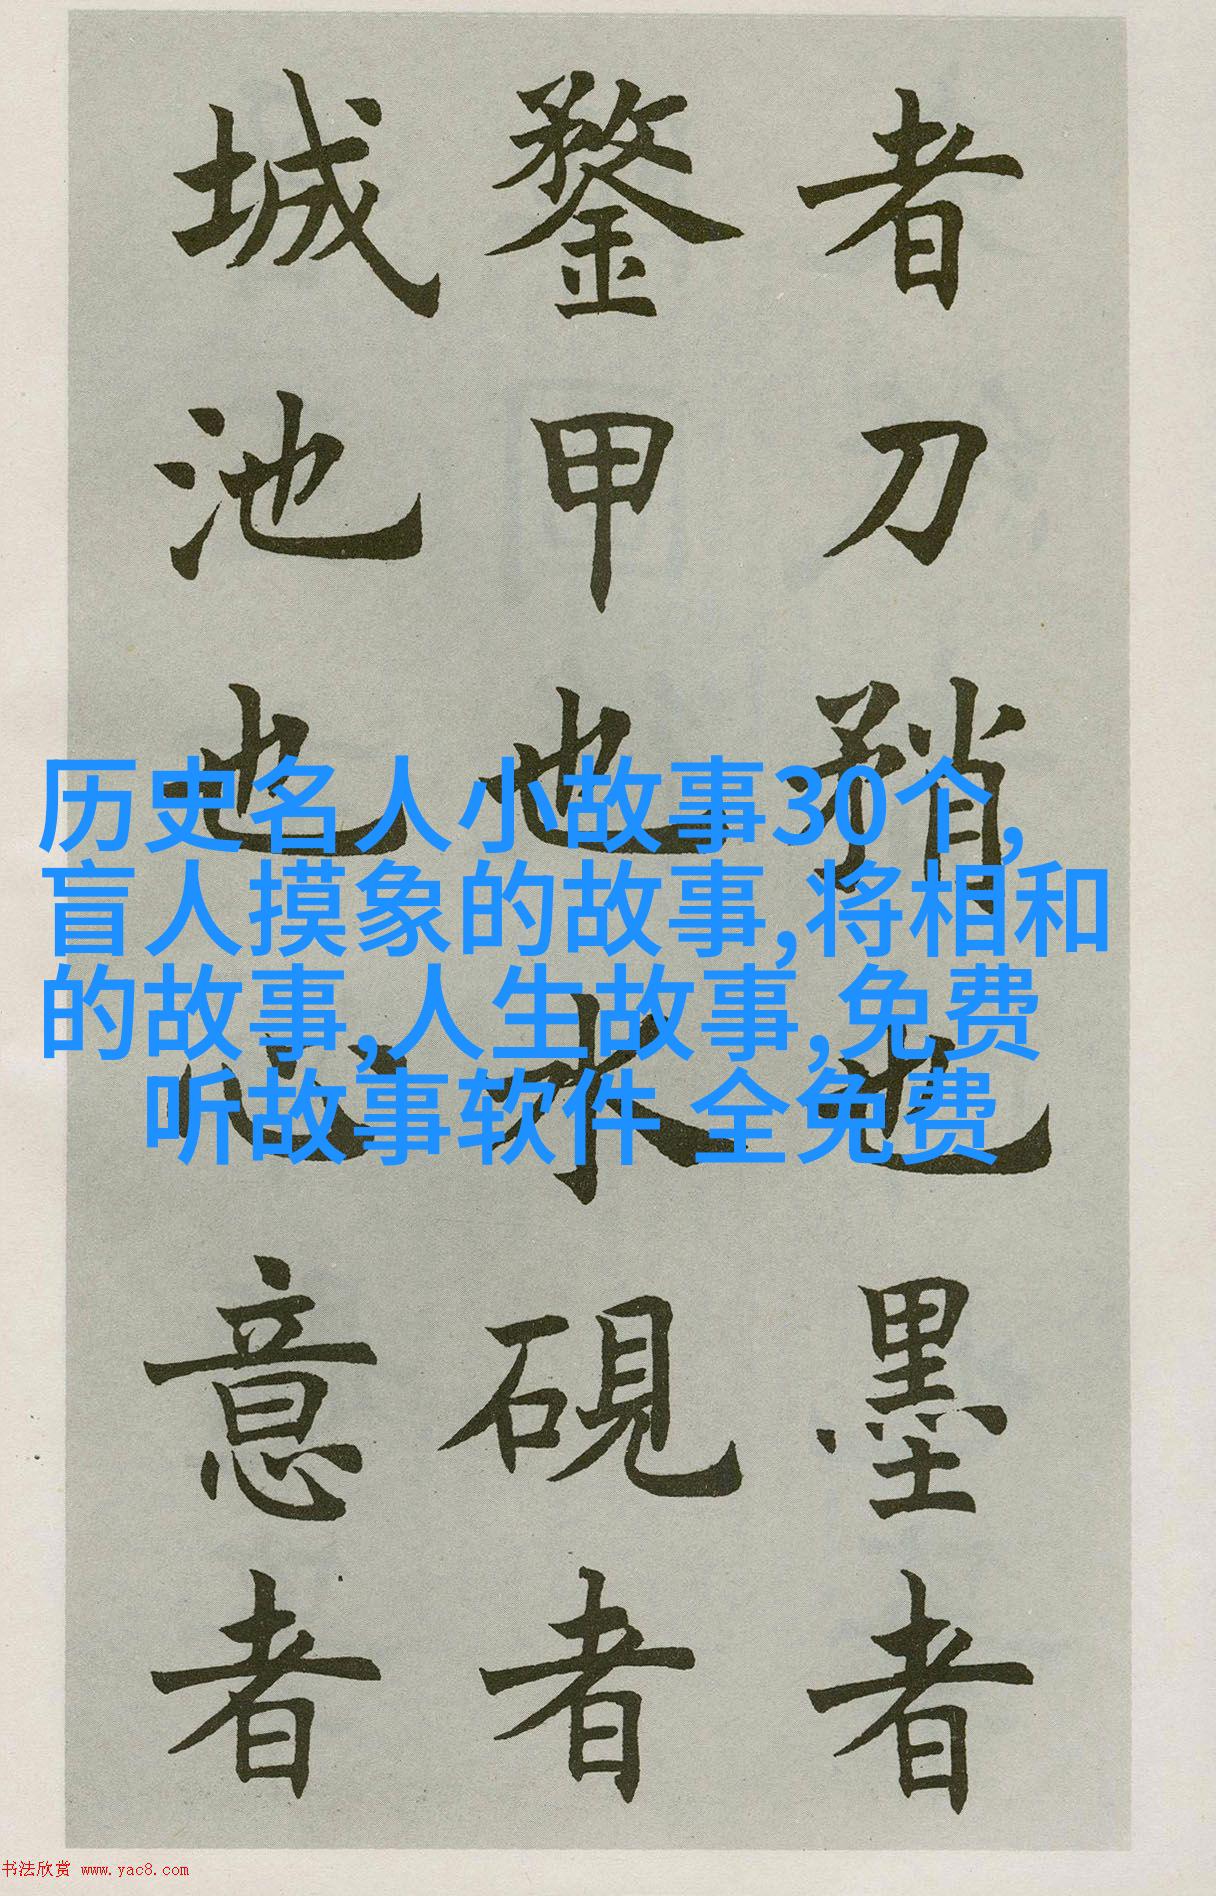 者刀矟也墨者
鍪甲也水硯者
城池也心意者
历史名人小故事30个,
盲人摸象的故事,将相和
的故事,人生故事,免费
听故事软件 全免费
书法欣赏 www.yac8.com